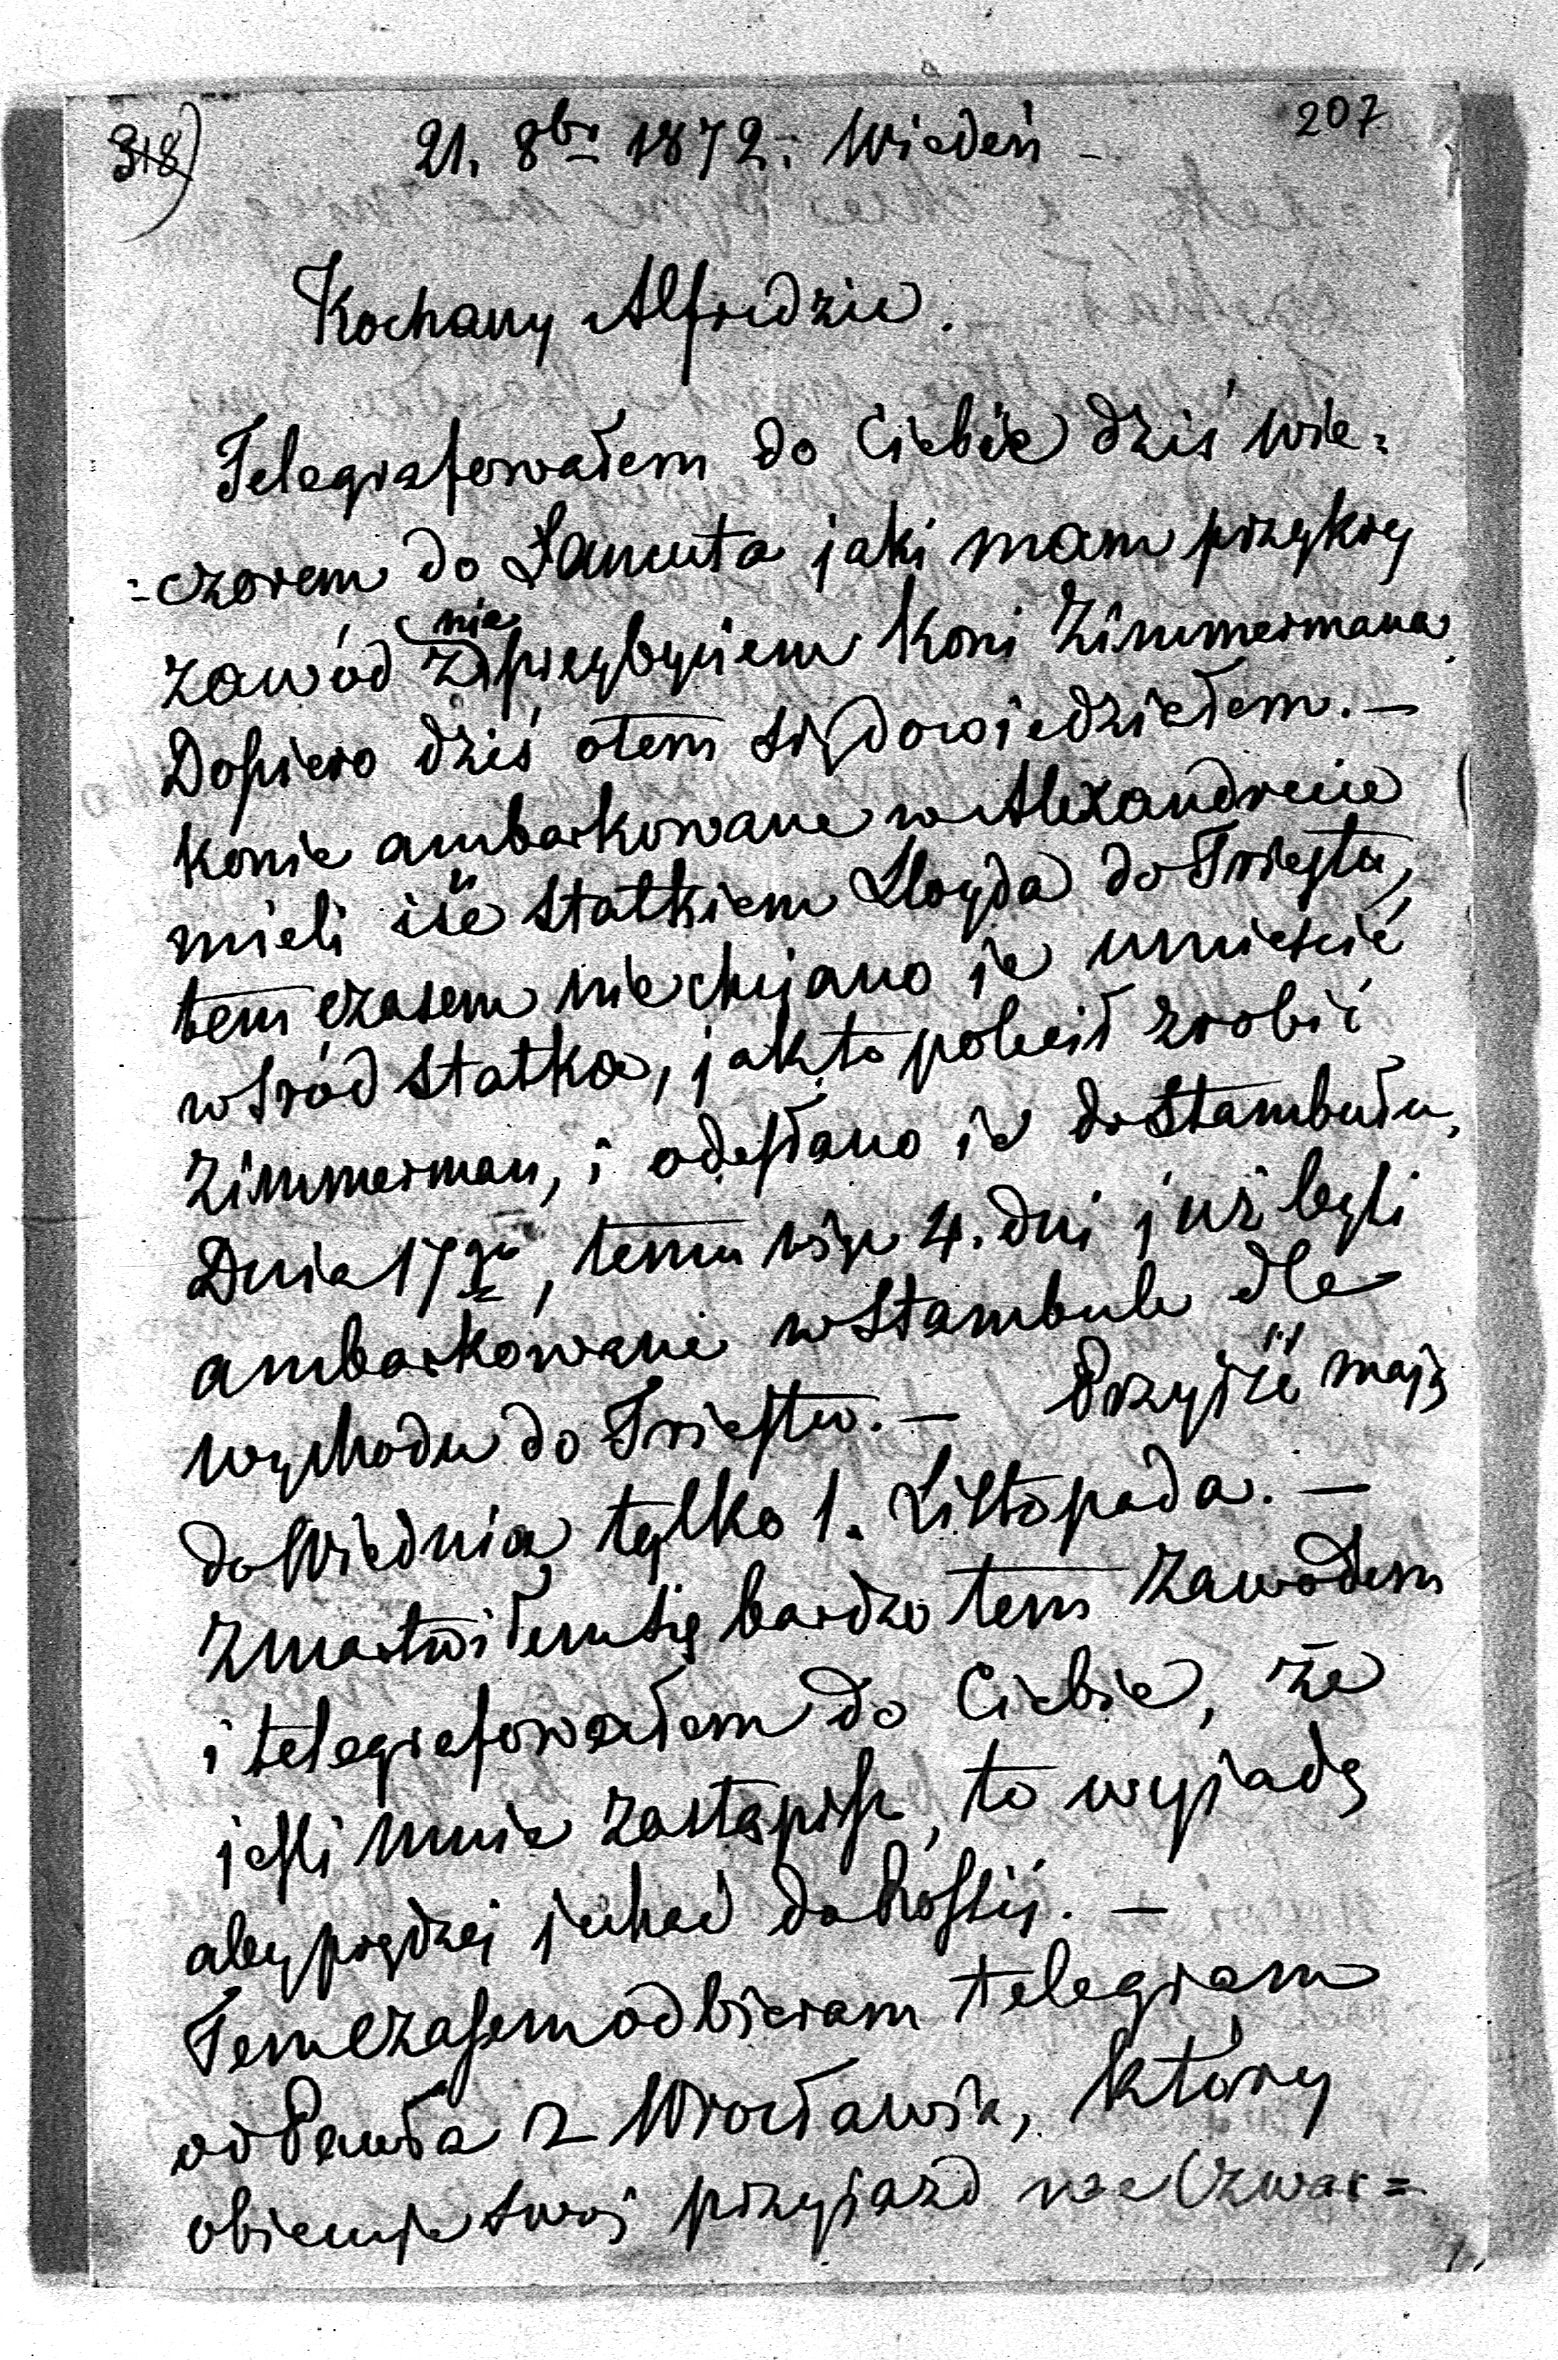 318) 21. 8br 1872. Wiedeń - 207
Kochany Alfredzie.
Telegrafowałem do Ciebie dziś wie=
=czorem do Łancuta jaki mam przykry
zawód z nie przybyciem koni Zimmermana.
Dopiero dziś otem się dowiedziałem. —
Konie ambarkowane w Alexandrecie
mieli iść statkiem Lloyda do Triestu,
tem czasem nie chciano je umieścić
wśród statka, jak to polecił zrobić
Zimmerman, i odesłano je do Stambułu,
Dnia 17go, temu więc 4. dni już byli
ambarkowane w Stambule dla
wychodu do Triestu. — Przyjść mają
do Wiednia tylko 1. Listopada. —
Zmartwiłem się bardzo tem zawodem
i telegrafowałem do Ciebie, że
jeśli mnie zastąpisz, to wyjadę
aby prędzej jechać do Rossij. —
Tem czasem odbieram telegram
od Pawła z Wrocławia, który
obiecuje swój przyjazd na Czwar=